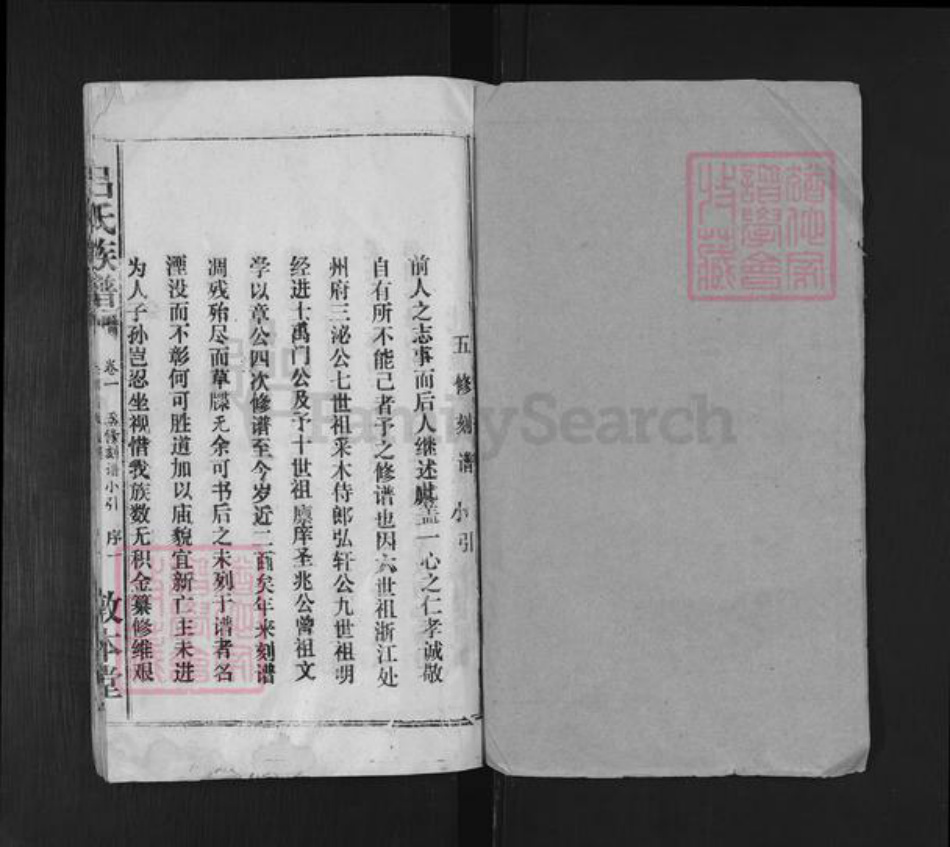 五修刻谱小引
前人之志事而后人继述此盖一心之仁孝诚敬
自有所不能己者予之修谱也因六世祖浙江处
州府三泌公七世祖采木侍郎弘轩公九世祖明
经进士禹门公及予十世祖廪庠圣兆公曾祖文
学以章公四次修谱至今岁近二百矣年来刻谱
凋残殆尽而草牒无余可书后之未列于谱者名
湮没而不彰何可胜道加以庙貌宜新亡主未进
为人子孙岂忍坐视惜我族数无积金纂修维艰
吕氏族谱 卷一 五修刻谱小引 序一 敦本堂
FamilySearch